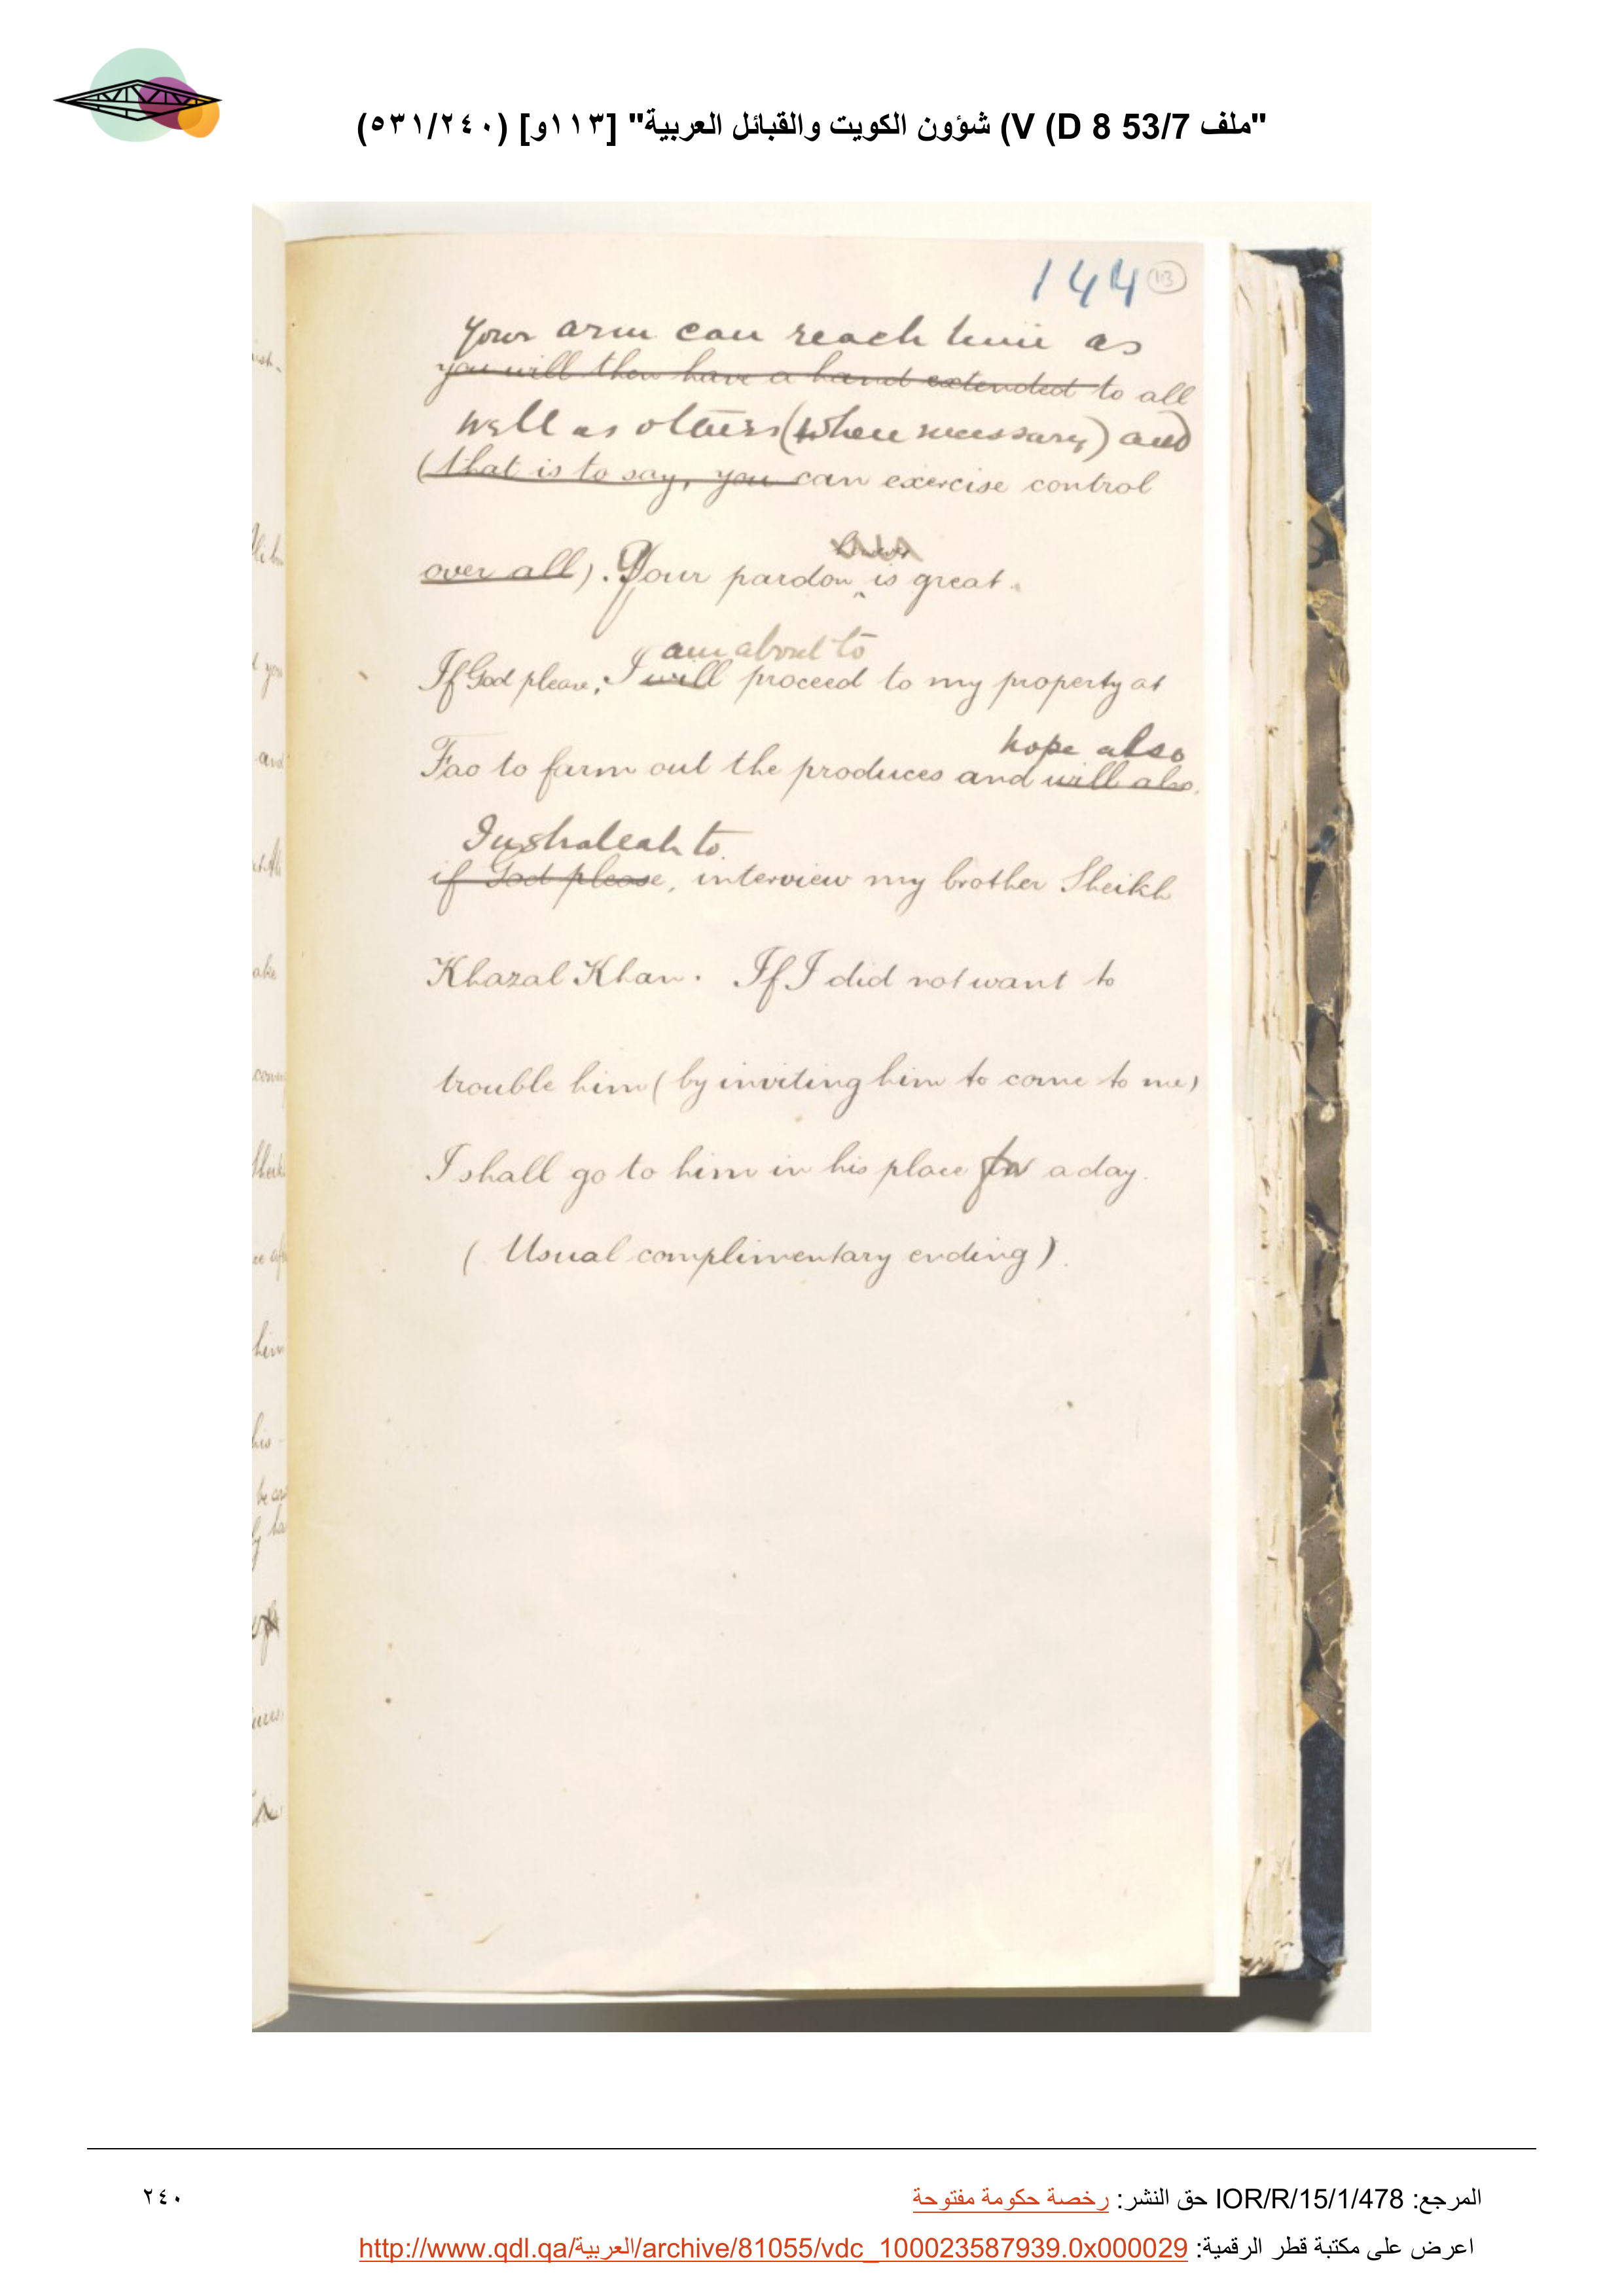 "ملف 53/7 V (D 8) شؤون الكويت والقبائل العربية" [١١٣و] (٥٣١/٢٤٠)
144 113
Your arm can reach him as
you will then have a hand extended to all
well as others (when necessary) and
(that is to say, you can exercise control
over all). Your pardon is great.
am about to
If God please, I will proceed to my property at
hope also
Fao to farm out the produces and will also,
Inshaleah to
if God please, interview my brother Sheikh
Khazal Khan. If I did not want to
trouble him (by inviting him to come to me)
I shall go to him in his place for a day.
(Usual complimentary ending).
المرجع: IOR/R/15/1/478 حق النشر: رخصة حكومة مفتوحة
٢٤٠
اعرض على مكتبة قطر الرقمية: http://www.qdl.qa/العربية/archive/81055/vdc_100023587939.0x000029